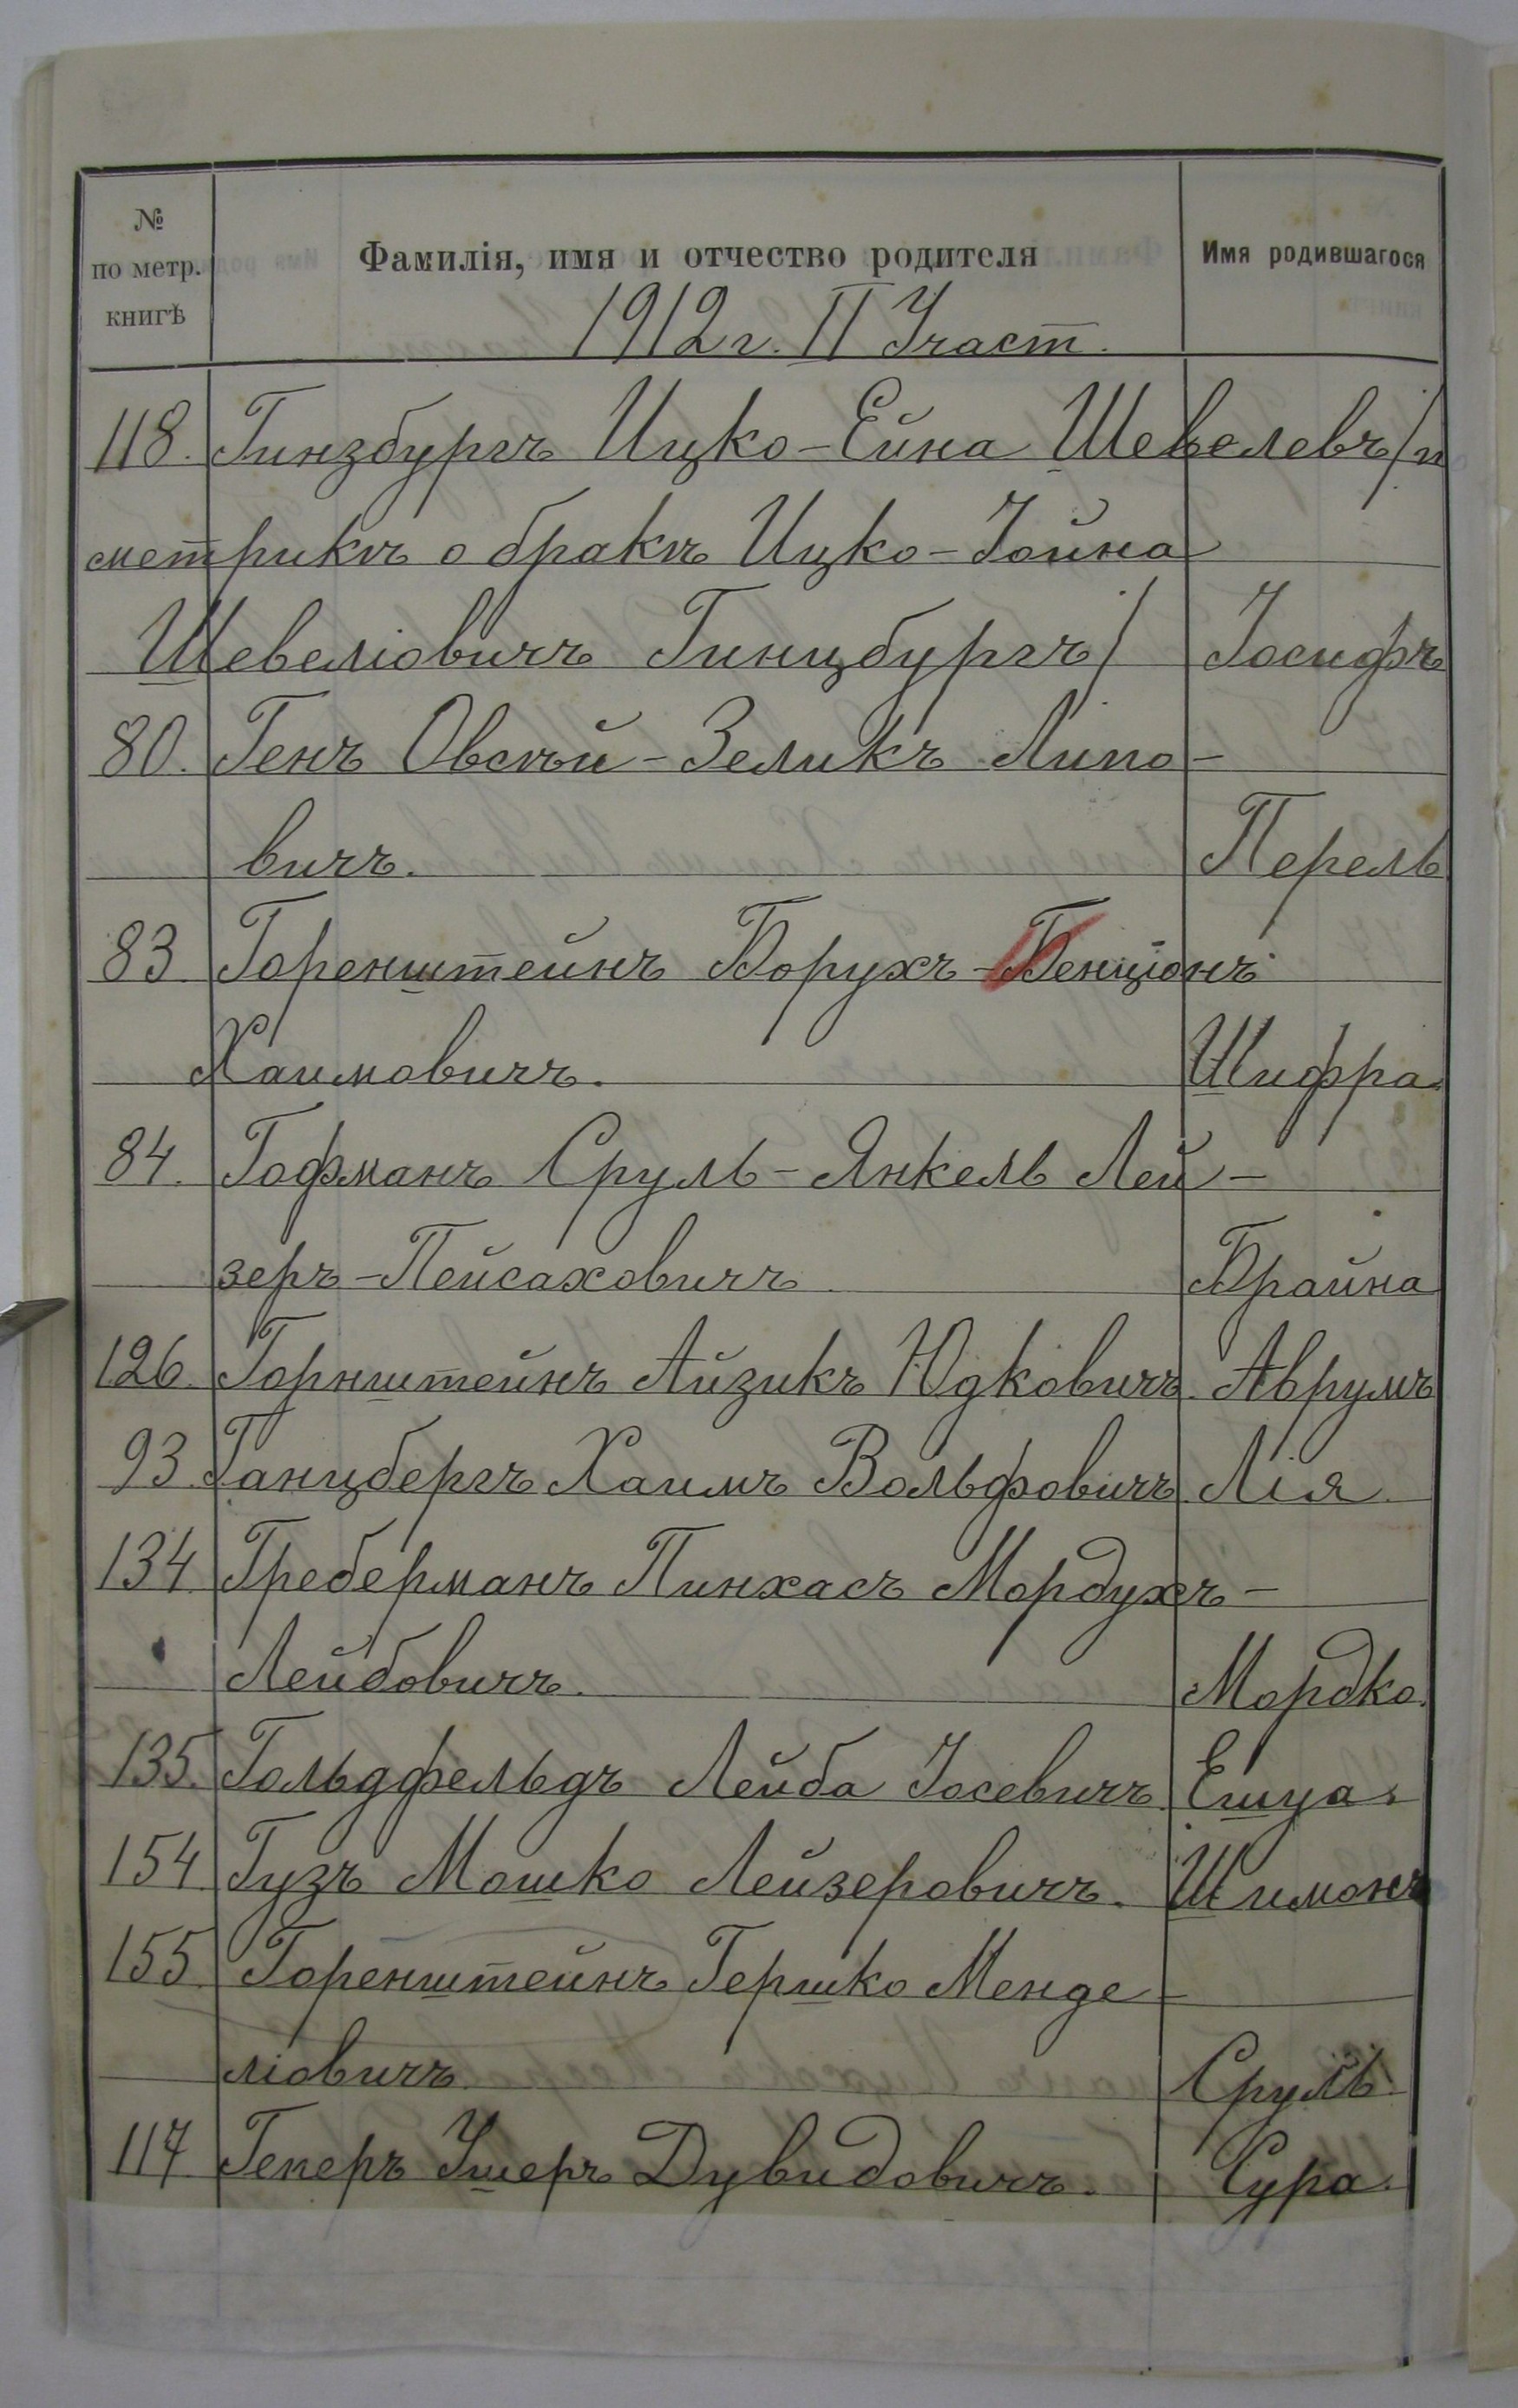 №
по метр.
книгѣ
Фамилія, имя и отчество родителя
Имя родившагося
1912 г. II Участ.
118. Гинзбургъ Ицко-Ейна Шевелевъ /п
метрикѣ о бракѣ Ицко-Іойна
Шевеліовичъ Гинцбургъ/ Іосифъ
80. Генъ Овсѣй-Зеликъ Липо-
вичъ. Перель
83 Горенштейнъ Борухъ-Бенціонъ
Хаимовичъ. Шифра.
84. Гофманъ Сруль-Янкель Лей-
зеръ-Пейсаховичъ Брайна
126. Горнштейнъ Айзикъ Юдковичъ. Аврумъ
93. Ганцбергъ Хаимъ Вольфовичъ. Лія.
134 Греберманъ Пинхасъ Мордухъ-
Лейбовичъ. Мордко.
135. Гольдфельдъ Лейба Іосевичъ. Ешуа.
154 Гузъ Мошко Лейзеровичъ. Шимонъ
155 Горенштейнъ Гершко Менде-
ліовичъ. Сруль.
117 Геперъ Ушеръ Дувидовичъ. Сура.